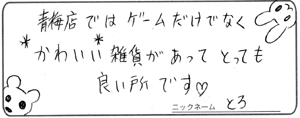 青梅店では ゲームだけでなく
*かわいい*雑貨があって とっても
良い所です♡
ニックネーム とろ